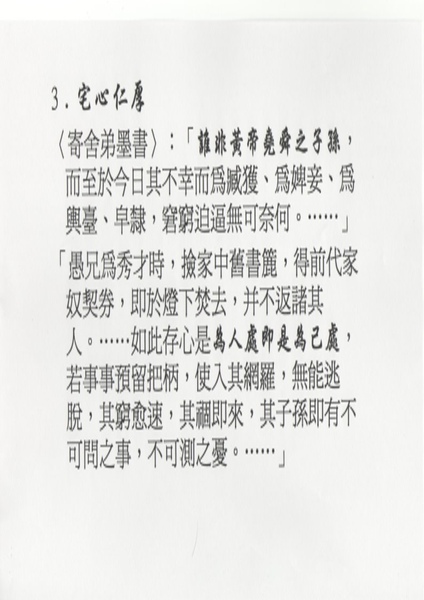 3.宅心仁厚
〈寄舍弟墨書〉:「誰非黃帝堯舜之子孫，
而至於今日其不幸而為臧獲、為婢妾、為
輿臺、皁隸，窘窮迫逼無可奈何。……」
「愚兄為秀才時，撿家中舊書簏，得前代家
奴契券，即於燈下焚去，并不返諸其
人。……如此存心是為人處即是為己處，
若事事預留把柄，使入其網羅，無能逃
脫，其窮愈速，其禍即來，其子孫即有不
可問之事，不可測之憂。……」